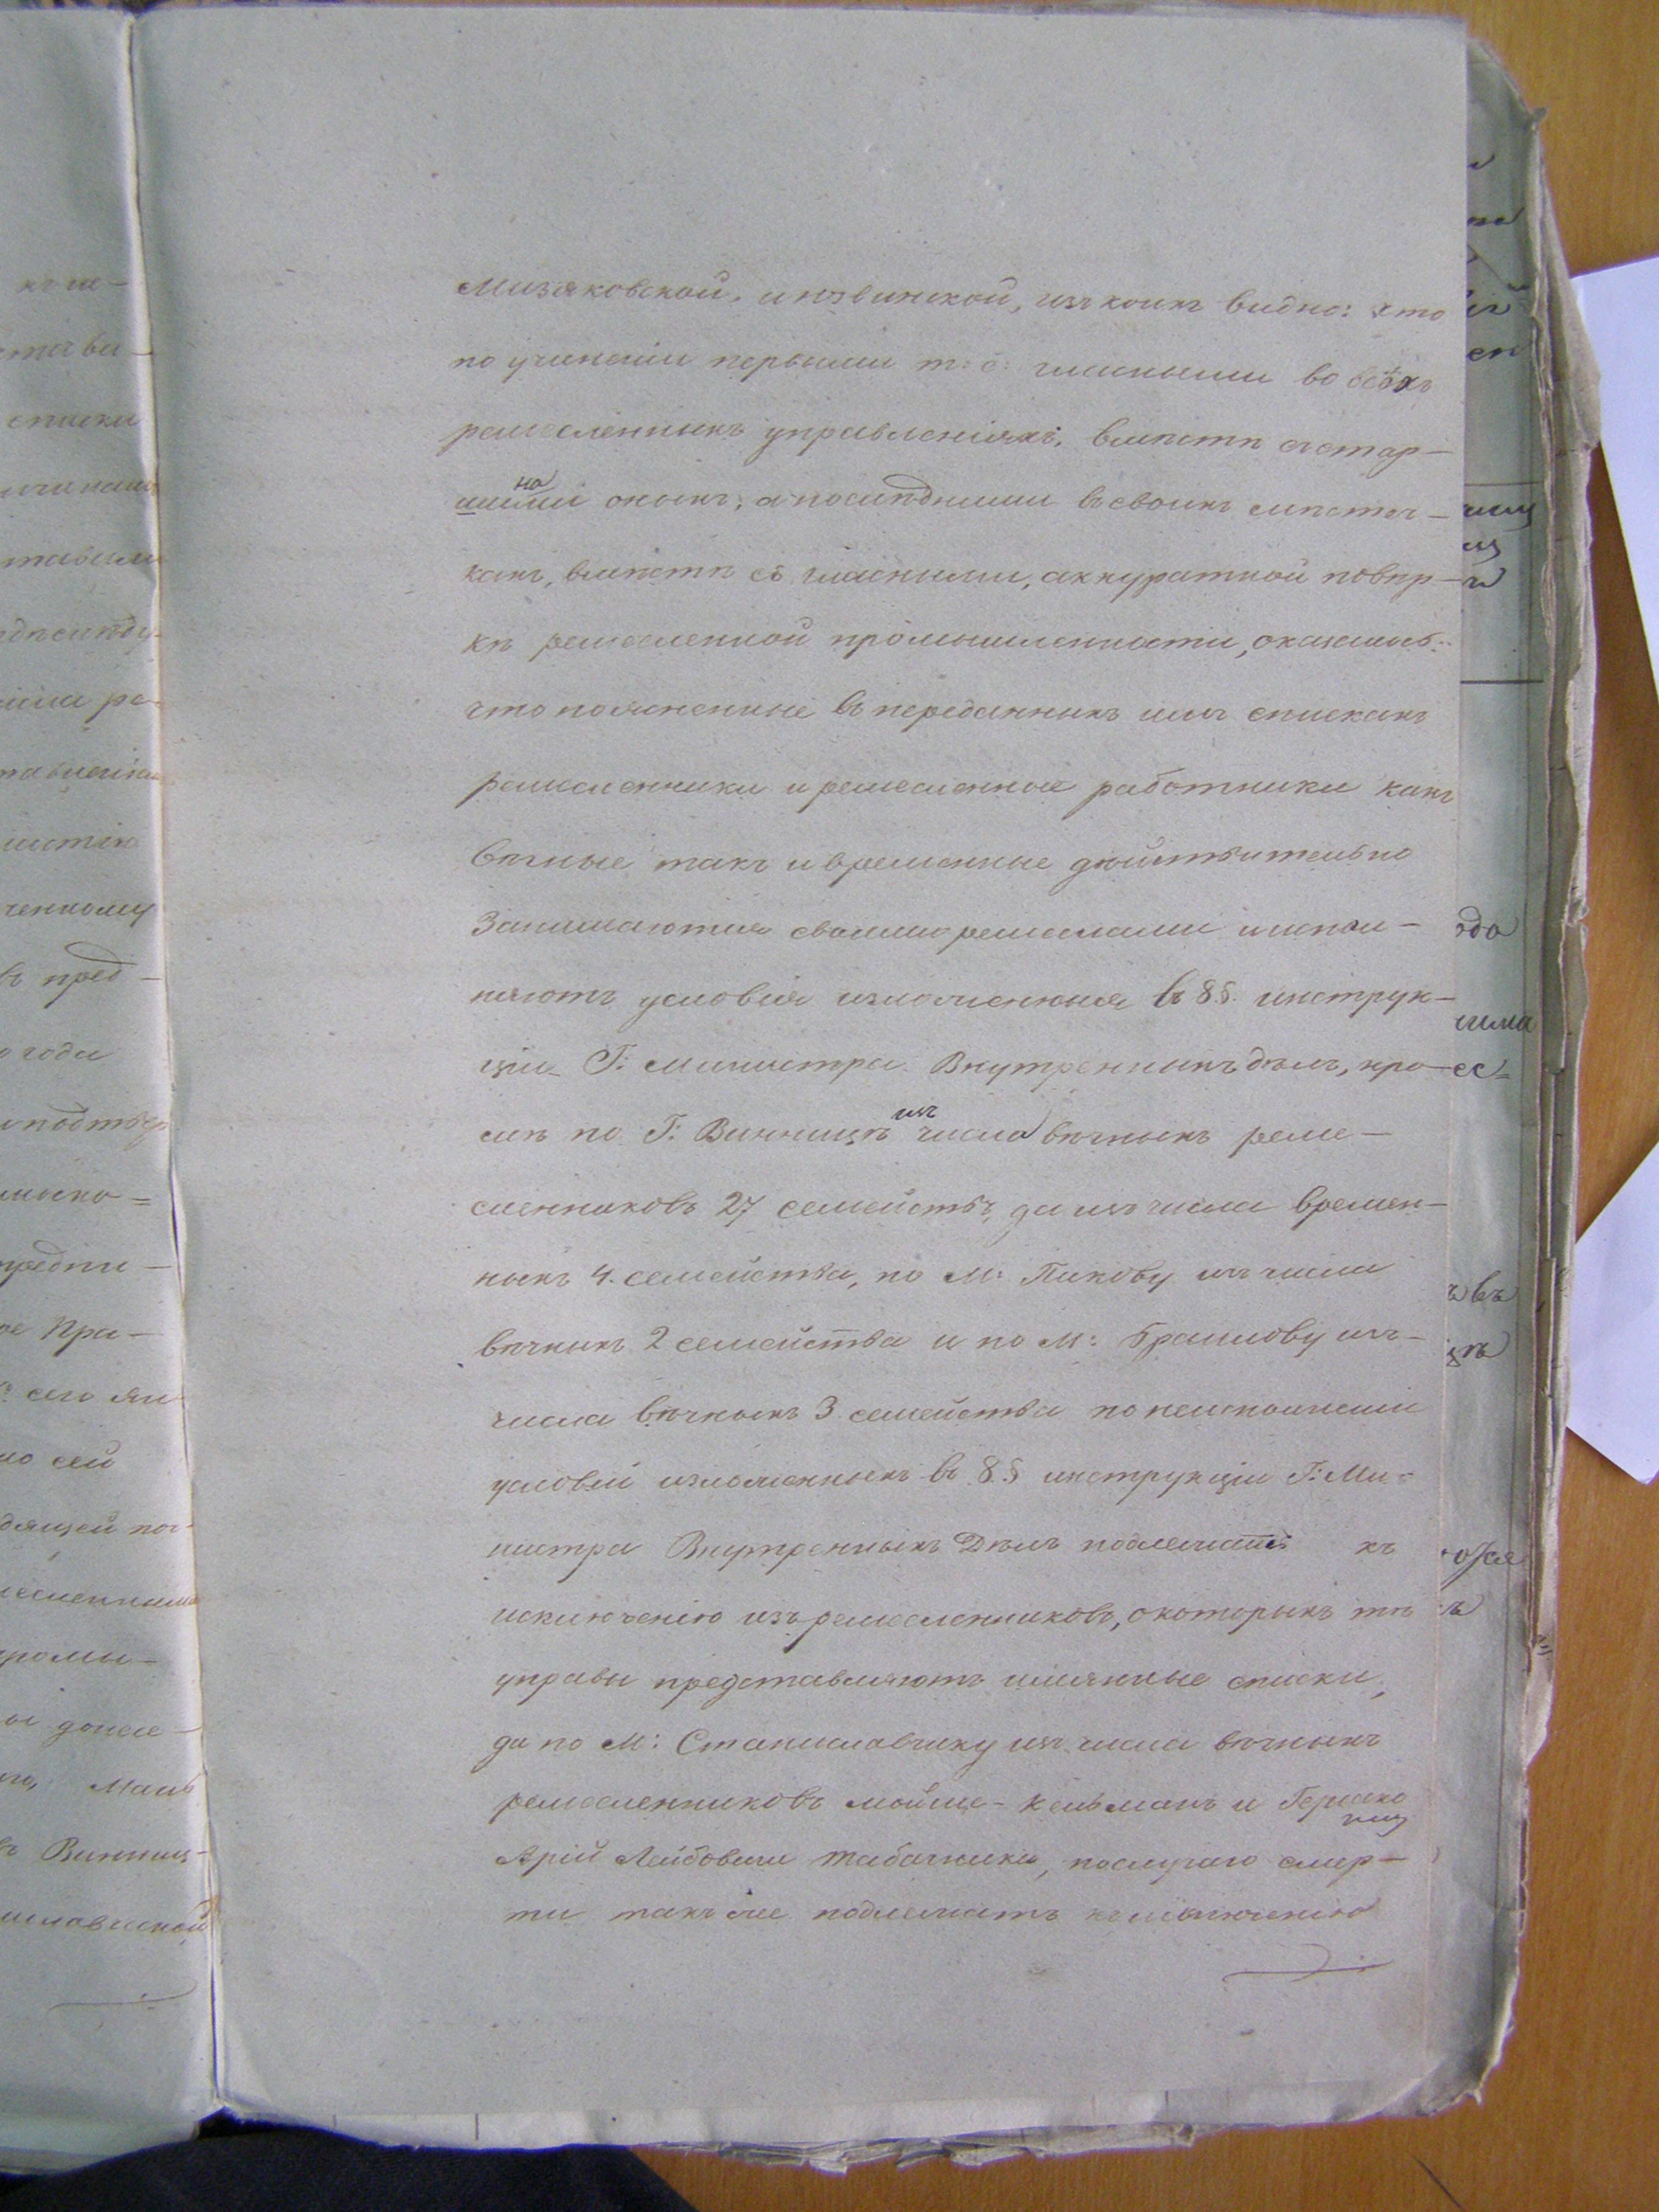 Мизяковской, и нозвинской, изъ коихъ видно: что
по учиненіи первыми т: е: гласными во всѣхъ
ремесленныхъ управленіяхъ, вмѣстѣ съ стар-
шинами оныхъ, а послѣдними въ своихъ мѣстеч-
кахъ, вмѣстѣ съ гласными, аккуратной повѣр-
кѣ ремесленной промышленности, оказалось:
что поясненные въ переданныхъ имъ спискахъ
ремесленники и ремесленные работники какъ
вѣчные такъ и временные дѣйствительно
Занимаются своими ремеслами и испол-
няютъ условія изложенныя въ 8 §. инструк-
ціи Г: Министра Внутреннихъ дѣлъ, кро-
мѣ по Г: Винницѣ изъ числа вѣчныхъ реме-
сленниковъ 27 семействъ, да изъ числа времен-
ныхъ 4. семейства, по М: Пикову изъ числа
вѣчныхъ 2 семейства и по М: Браилову изъ-
числа вѣчныхъ 3 семейства по неисполненіи
условій изложенныхъ въ 8 § инструкціи Г: Ми-
нистра Внутреннихъ Дѣлъ подлежатъ къ
исключенію изъ ремесленниковъ, о которыхъ тѣ
управы представляютъ имянные списки,
да по М: Станиславчику изъ числа вѣчныхъ
ремесленниковъ Мойше-Кельманъ и Гершко
Арій Лейбовичи Табачники, по случаю смер-
ти такъ же подлежатъ къ исключенію